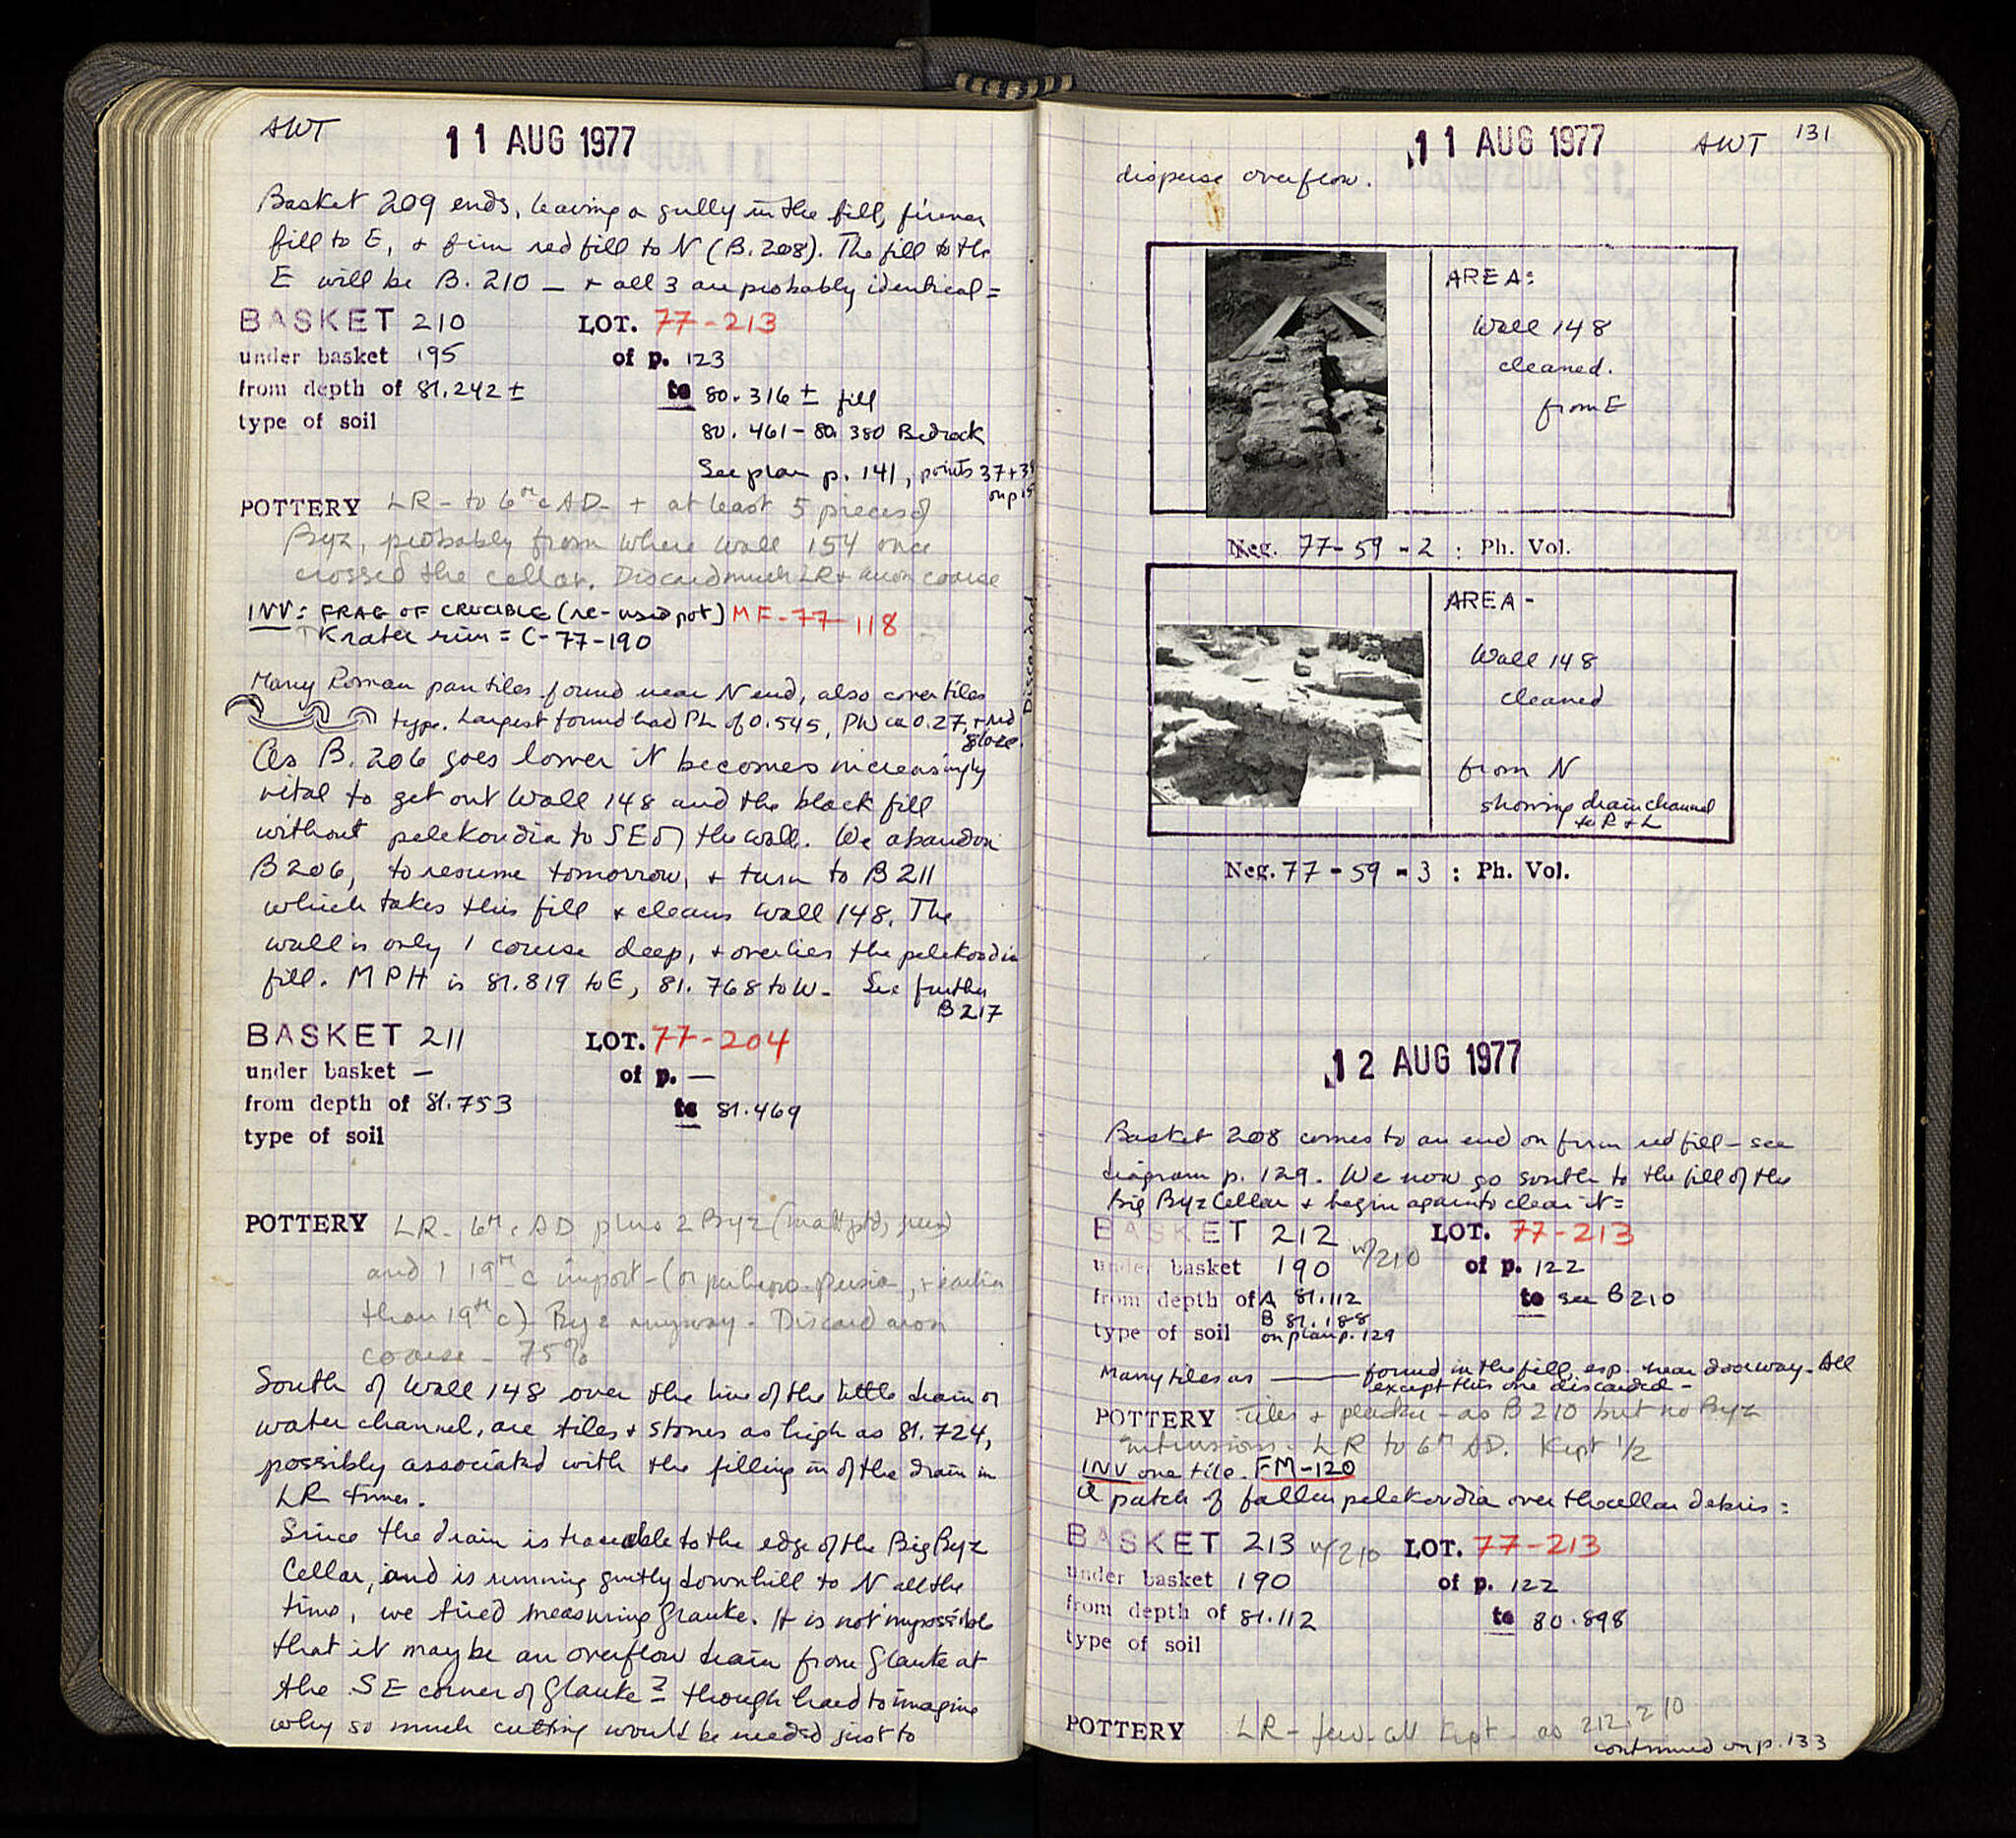 AWT
11 AUG 1977
Basket 209 ends, leaving a gully in the fill, firmer
fill to E, + firm red fill to N (B.208). The fill to the
E will be B. 210 — + all 3 are probably identical =
BASKET 210 LOT. 77-213
under basket 195 of p. 123
from depth of 81.242 ± to 80.316 ± fill
type of soil
80.461 - 80.380 Bedrock
See plan p. 141, points 37+38
on p
POTTERY LR - to 6th c AD - + at least 5 pieces of
Byz, probably from where wall 154 once
crossed the cellar. Discard much LR + avon coarse
INV: FRAG OF CRUCIBLE (re-used pot) MF-77-118
Krater rim = C-77-190
Many Roman pan tiles found near N end, also cover tiles
type. Largest found had PL of 0.545, PW ca 0.27, + red
glaze.
Discarded
As B. 206 goes lower it becomes increasingly
vital to get out Wall 148 and the black fill
without pelekoudia to SE of the wall. We abandon
B206, to resume tomorrow, + turn to B211
which takes this fill + cleans Wall 148. The
wall is only 1 course deep, + overlies the pelekoudia
fill. MPH is 81.819 to E, 81.768 to W - See further
B217
BASKET 211 LOT. 77-204
under basket — of p. —
from depth of 81.753 to 81.469
type of soil
POTTERY LR - 6th c AD plus 2 Byz (matt ptd, green)
and 1 19th c import - (or perhaps Persia, + earlier
than 19th c) Byz anyway - Discard avon
coarse - 75%
South of Wall 148 over the line of the little drain or
water channel, are tiles + stones as high as 81.724,
possibly associated with the filling in of the drain in
LR times.
Since the drain is traceable to the edge of the Big Byz
Cellar, and is running gently downhill to N all the
time, we tried measuring Glauke. It is not impossible
that it may be an overflow drain from Glauke at
the SE corner of Glauke? though hard to imagine
why so much cutting would be needed just to
11 AUG 1977
AWT 131
disperse overflow.
AREA:
Wall 148
cleaned.
from E
Neg. 77-59-2 : Ph. Vol.
AREA -
Wall 148
cleaned
from N
showing drain channel
to R + L
Neg. 77-59-3 : Ph. Vol.
12 AUG 1977
Basket 208 comes to an end on firm red fill - see
diagram p. 129. We now go south to the fill of the
big Byz Cellar + begin again to clear it =
BASKET 212 w/210 LOT. 77-213
under basket 190 of p. 122
from depth of A 81.112 to see B210
B 81.188
type of soil on plan p. 129
Many tiles as ——— found in the fill, esp. near doorway. All
except this one discarded -
POTTERY Tiles + plaster - as B210 but no Byz
intrusions. LR to 6th AD. Kept 1/2
INV one tile. FM-120
A patch of fallen pelekoudia over the cellar debris :
BASKET 213 w/210 LOT. 77-213
under basket 190 of p. 122
from depth of 81.112 to 80.898
type of soil
POTTERY LR - few - all kept - as 212, 210
continued on p. 133